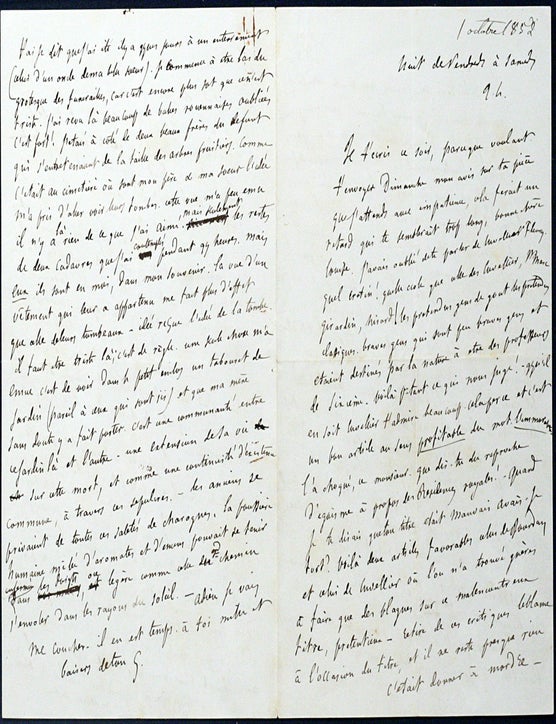 Hai je dit que j'ai été il y a q ques jours à un enterrement
(celui d'un oncle de ma belle sœur). je commence à être las du
grotesque des funerailles, car c'est encore plus sot que ce n'est
triste. j'ai revu là beaucoup de balles rouennaises oubliées
c'est fort! j'étais à coté de deux beaux frères du défunt
qui s'entretenaient de la taille des arbres fruitiers. Comme
c'était au cimetière où sont mon père & ma sœur l'idée
m'a pris d'aller voir leurs tombes. cette vue m'a peu ému
il n'y a là rien de ce que j'ai aimé, mais seulement les restes
de deux cadavres que j'ai contemplés pendant qq heures. mais
eux ils sont en moi, dans mon souvenir. la vue d'un
vêtement qui leur a appartenu me fait plus d'effet
que celle de leurs tombeaux - idée reçue l'idée de la tombe.
il faut être triste là, c'est de règle. une seule chose m'a
ému c'est de voir dans le petit enclos un tabouret de
jardin (pareil à ceux qui sont ici) et que ma mère
sans doute y a fait porter c'est une communauté entre
ce jardin là et l'autre - une extension de sa vie
sur cette mort, et comme une continuité d'existence
commune, à travers ces sépulcres. - les anciens se
privaient de toutes ces saletés de charognes. la poussière
humaine mêlée d'aromates et d'encens pouvait se tenir
enfermée dans les doigts, ou légère comme celle du chemin
s'envoler dans les rayons du soleil. - adieu je vais
me coucher. il en est temps. à toi mille et
baisers de ton G.
1 octobre 1852
Nuit de vendredi à samedi
9 h.
Je t'écris ce soir, parce que voulant
t'envoyer Dimanche mon avis sur ta pièce
que j'attends avec impatience, cela ferait un
retard qui te semblerait trop long, bonne chère
Louise. J'avais oublié de te parler de Cuvillier Fleury,
quel crétin! quelle école que celle des Cuvillier, St Marc
Girardin, Nisard! les prétendus gens de goût les prétendus
classiques. braves gens qui sont peu braves gens et
étaient destinés par la nature à être des professeurs
de sixième. voilà pourtant ce qui nous juge! quoi qu'il
en soit Cuvillier t'admire beaucoup, cela perce et c'est
un bon article au sens profitable du mot.
l'a choqué, ce monsieur. que dis-tu du reproche
d'égoïsme à propos des Résidences royales. Quand
je te disais que ton titre était mauvais avais-je
tort? Voilà deux articles favorables celui de
et celui de Cuvillier où l'on n'a trouvé guères
à faire que des blagues sur ce malencontreux
titre, prétentieux - retire de ces critiques le blâme
à l'occasion du titre, et il ne reste presque rien
c'était donner à mordre -